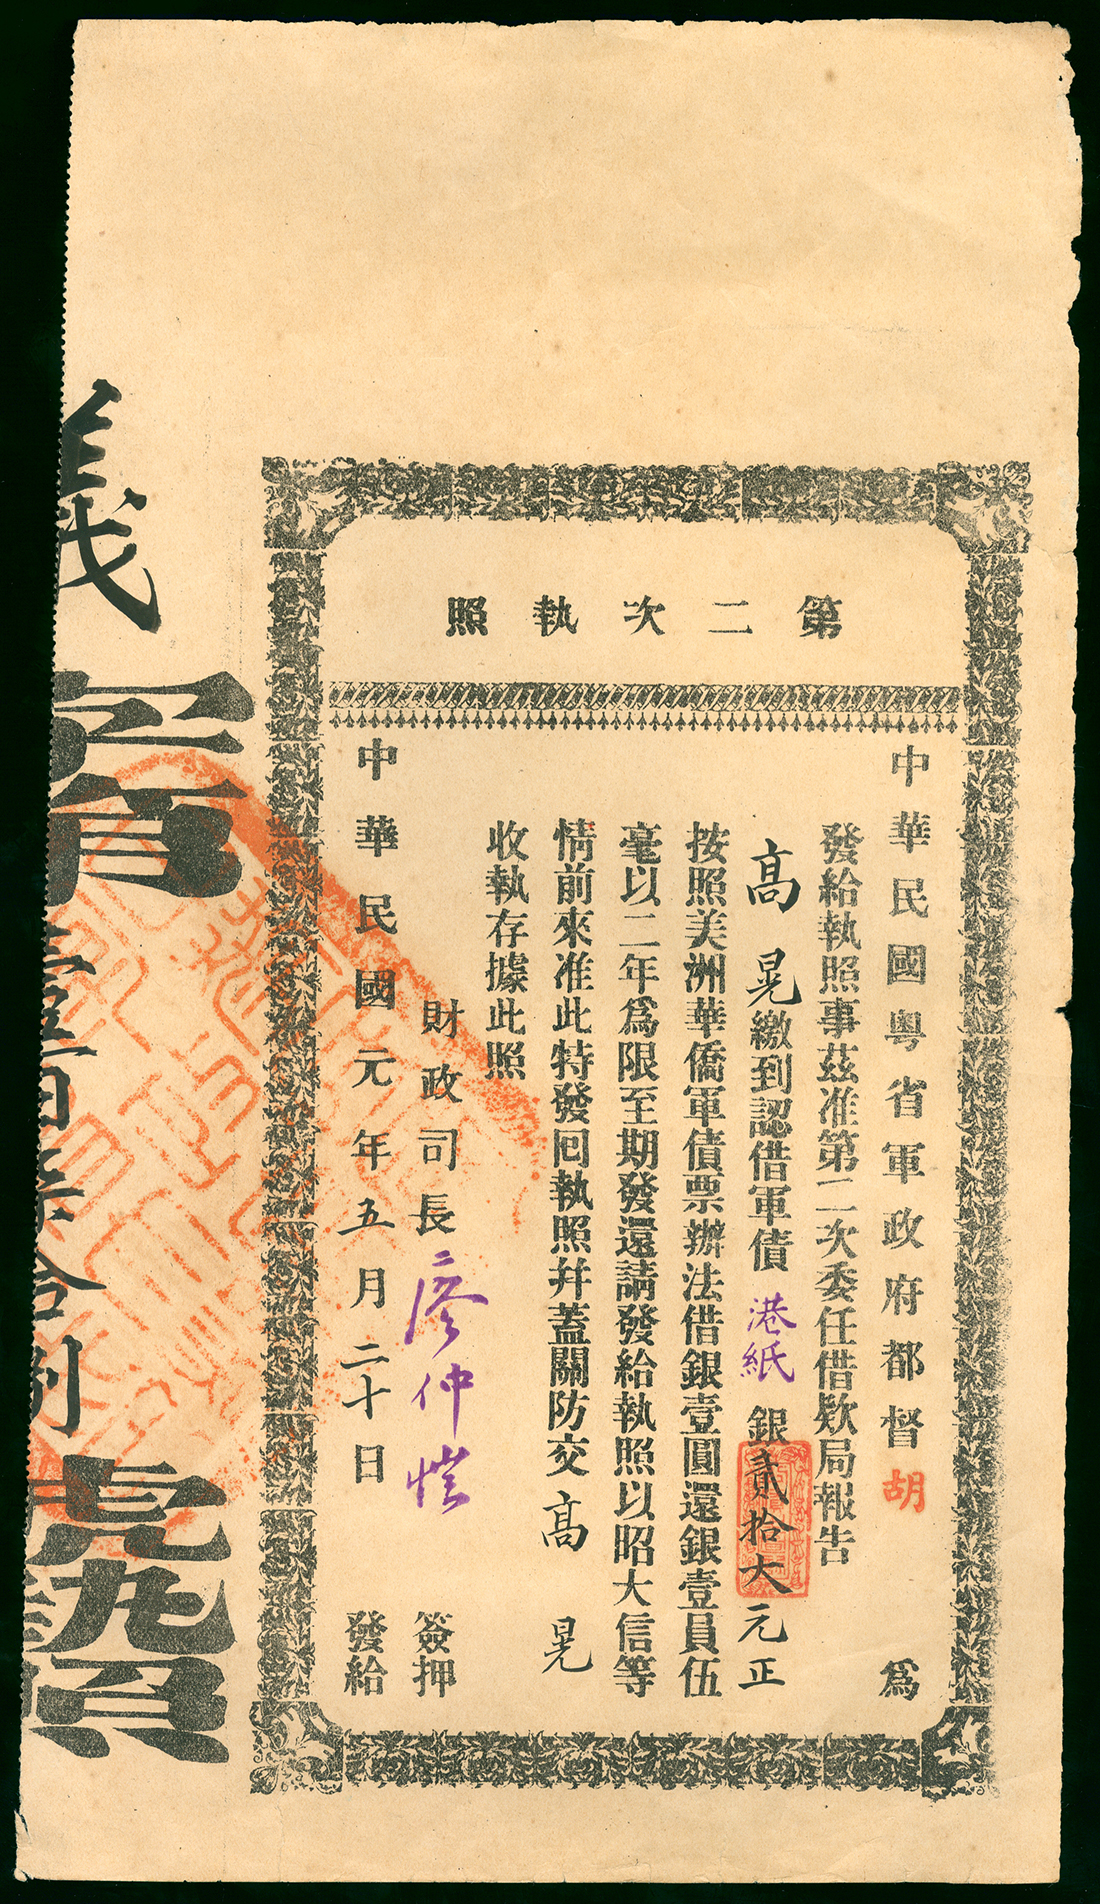 第二次執照
中華民國粵省軍政府都督胡 為
發給執照事茲准第二次委任借欵局報告
高晃繳到認借軍債港紙銀貳拾大元正
按照美洲華僑軍債票辦法借銀壹圓還銀壹員伍
毫以二年為限至期發還請發給執照以昭大信等
情前來准此特發回執照幷蓋關防交高晃
收執存據此照
財政司長廖仲愷 簽押
中華民國元年五月二十日 發給